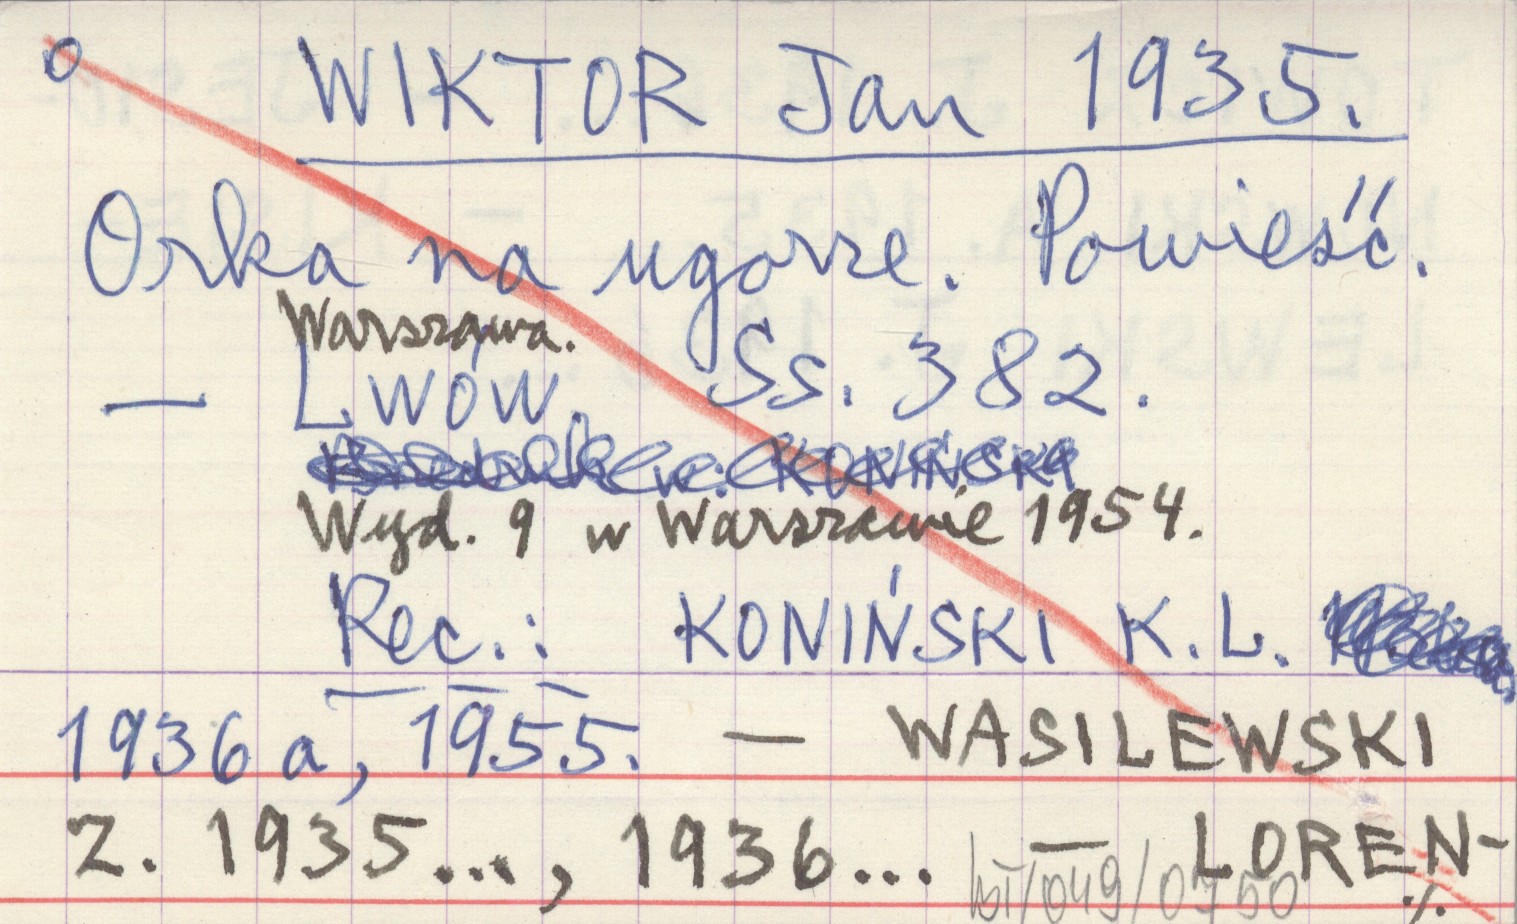 o WIKTOR Jan 1935.
Orka na ugorze. Powieść.
Warszawa.
— LWÓW. Ss. 382.
KONIŃSKI
Wyd. 9 w Warszawie 1954.
Rec.: KONIŃSKI K.L.
1936a, 1955. — WASILEWSKI
Z. 1935..., 1936... — LOREN-
/049/0750 ./.